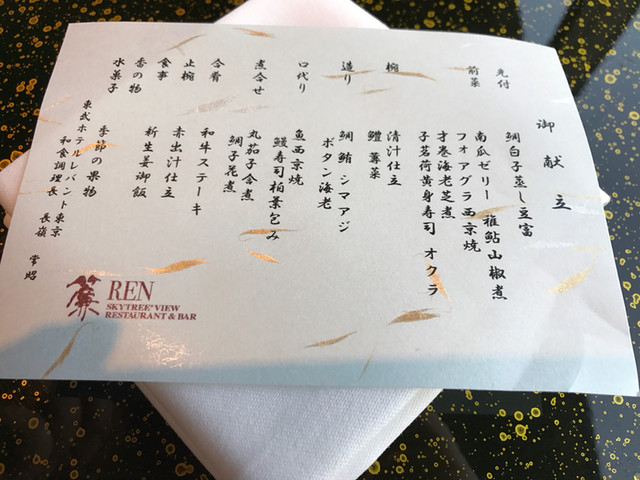 御献立
先付
鯛白子蒸し豆富
前菜
南瓜ゼリー 稚鮎山椒煮
フォアグラ西京焼
才巻海老芝煮
子茗荷黄身寿司 オクラ
椀
清汁仕立
鱧 蓴菜
造り
鯛 鮪 シマアジ
ボタン海老
口代り
魚西京焼
鰻寿司柏葉包み
煮合せ
丸茄子含煮
鯛子花煮
合肴
和牛ステーキ
止椀
赤出汁仕立
食事
新生姜御飯
香の物
水菓子
季節の果物
東武ホテルレバント東京
和食調理長 長嶺
REN
SKYTREE® VIEW
RESTAURANT & BAR